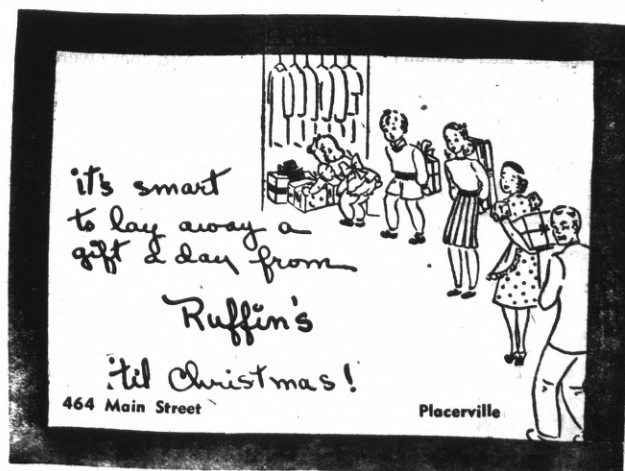 it's smart
to lay away a
gift a day from
Ruffin's
'til Christmas!
464 Main Street
Placerville